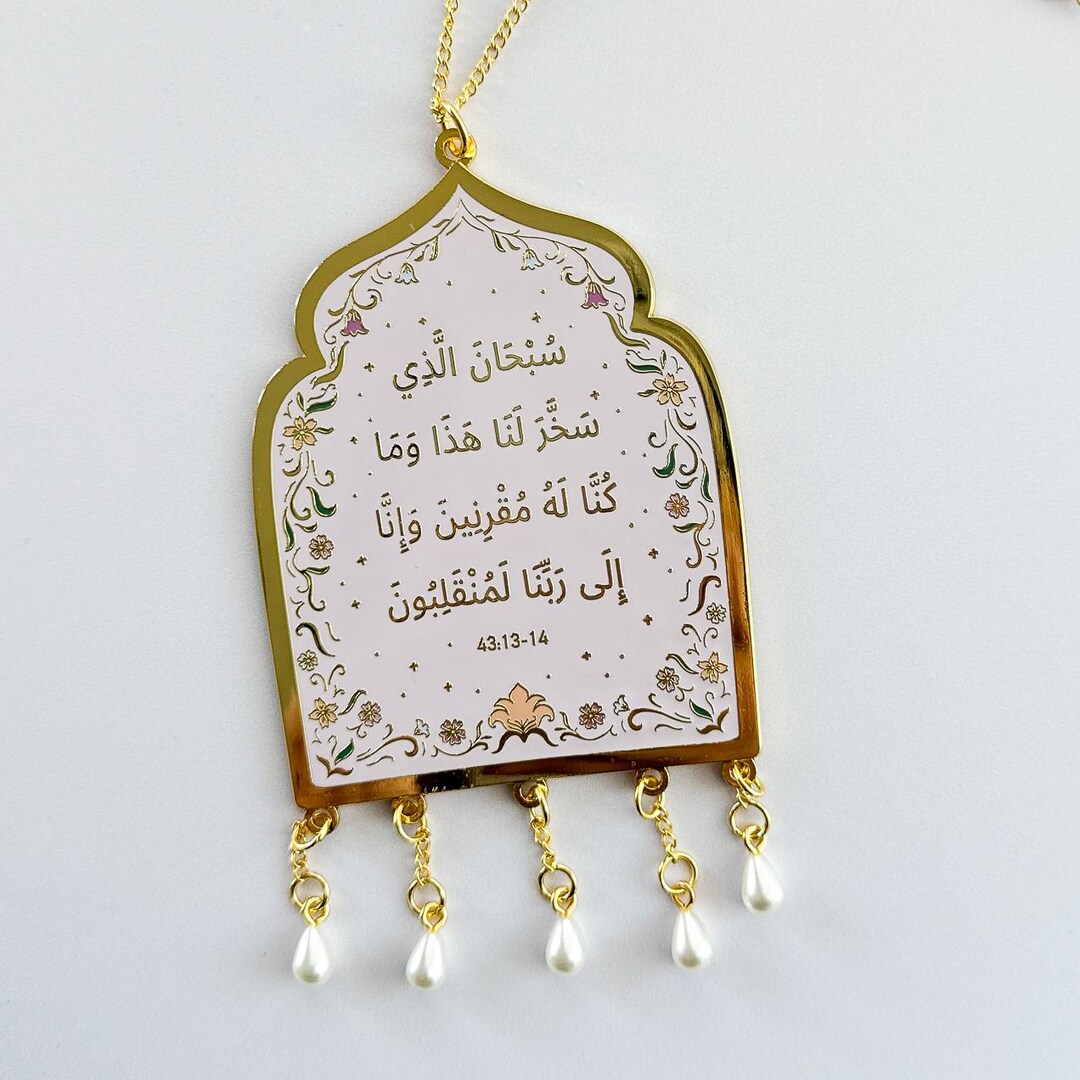 سُبْحَانَ الَّذِي
سَخَّرَ لَنَا هَذَا وَمَا
كُنَّا لَهُ مُقْرِنِينَ وَإِنَّا
إِلَى رَبِّنَا لَمُنْقَلِبُونَ
43:13-14